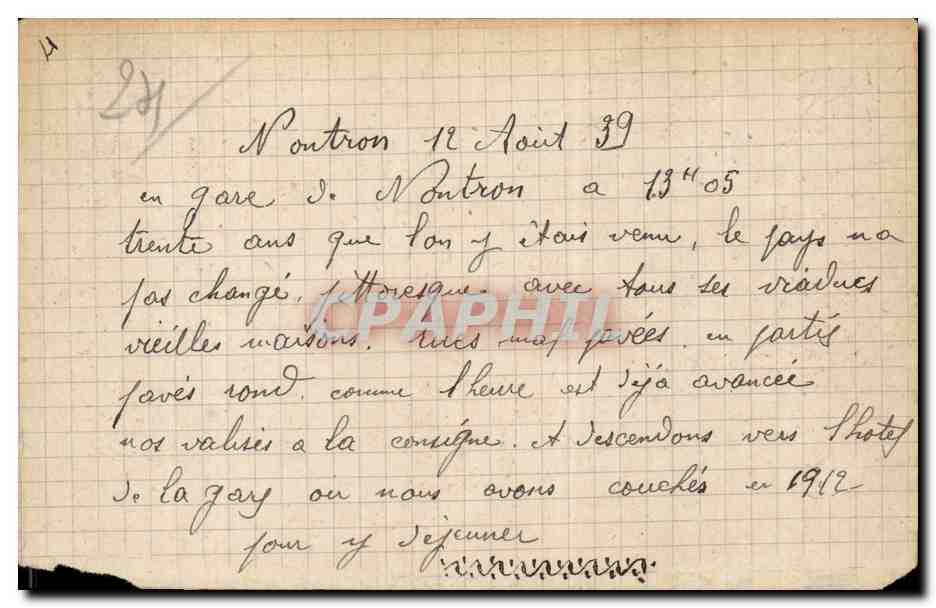 4
24
Nontron 12 Août 39
en gare de Nontron a 13H05
trente ans que l'on y étais venu, le pays n a
pas changé, pittoresque avec tous ses viaducs
vieilles maisons. rues mal pavées. en partis
pavés rond. comme l heure est déjà avancée
nos valises a la consigne. et descendons vers l hotel
de la gare ou nous avons couchés en 1912
pour y déjeuner
CPAPHIL